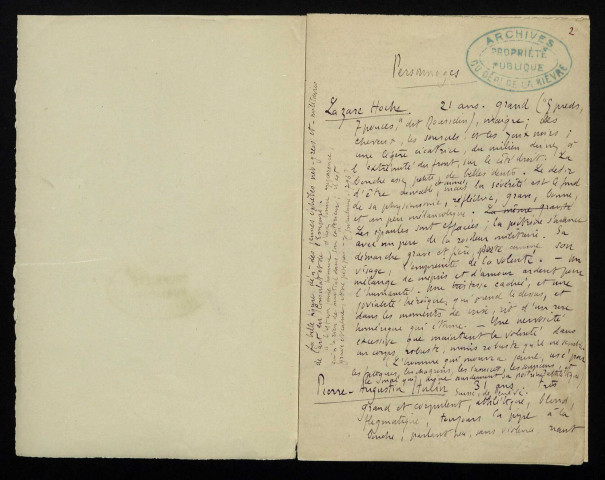 2
ARCHIVES
PROPRIÉTÉ
PUBLIQUE
DU DÉPT DE LA NIÈVRE
Personnages
Lazare Hoche 21 ans. grand ("5 pieds,
7 pouces," dit Rousselin), maigre; les
cheveux, les sourcils et les yeux noirs;
une légère cicatrice, du milieu du nez à
l'extrémité du front, sur le côté droit. La
bouche assez petite, de belles dents. Le désir
d'être aimable, mais la sévérité est le fond
de sa physionomie, réfléchie, grave, bonne,
et un peu mélancolique. La même gravité
Les épaules sont effacées; la poitrine s'avance
avec un peu de la roideur militaire. Sa
démarche grave et fière, porte comme son
visage, l'empreinte de la volonté. – Un
mélange de mépris et d'amour ardent pour
l'humanité. Une tristesse cachée, et une
jovialité héroïque, qui prend le dessus, et
dans les moments de crise, rit d'un rire
homérique qui étonne. – Une nervosité
excessive que maintient la volonté dans
un corps robuste, moins robuste qu'il ne semble.
(L'homme qui mourra jeune, usé par
les fatigues, les chagrins, les
Pierre-Augustin Hulin 31 ans, très
grand et corpulent, athlétique, blond,
flegmatique, toujours la pipe à la
bouche, parlant peu, sans violence, riant